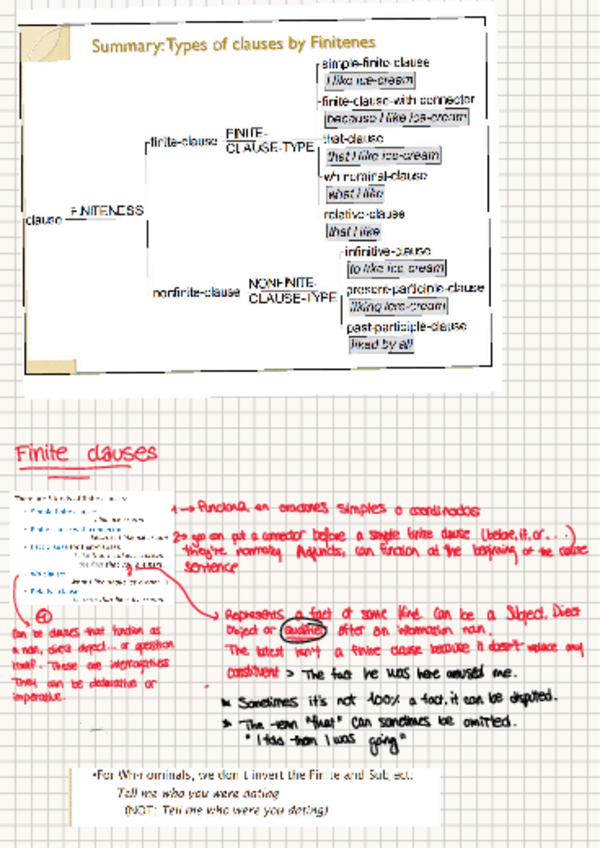 Summary: Types of clauses by Finitenes
simple-finite-clause
I like ice-cream
finite-clause-with connector
because I like ice-cream
finite-clause
FINITE-
CLAUSE-TYPE
that-clause
that I like ice-cream
wh-nominal-clause
what I like
relative-clause
that I like
clause
FINITENESS
nonfinite-clause
NONFINITE-
CLAUSE-TYPE
infinitive-clause
to like ice cream
present-participle-clause
liking icre-cream
past-participle-clause
liked by all
Finite clauses
1 → Funciona en oraciones simples o coordinadas
2 → you can put a connector before a simple finite clause (before, if, or...)
they're normally Adjuncts, can function at the beginning of the
sentence
Represents a fact of some kind. Can be a Subject, Direct
Object or Qualifier after an information noun.
The latest isn't a finite clause because it doesn't replace any
constituent > The fact he was here amused me.
Sometimes it's not 100% a fact, it can be disputed.
The term "that" can sometimes be omitted.
I was going"
can be clauses that function as
a noun, direct object... or question
itself. These are interrogatives
They can be declarative or
imperative.
•For Wh-nominals, we don't invert the Finite and Subject:
Tell me who you were dating
(NOT: Tell me who were you dating)